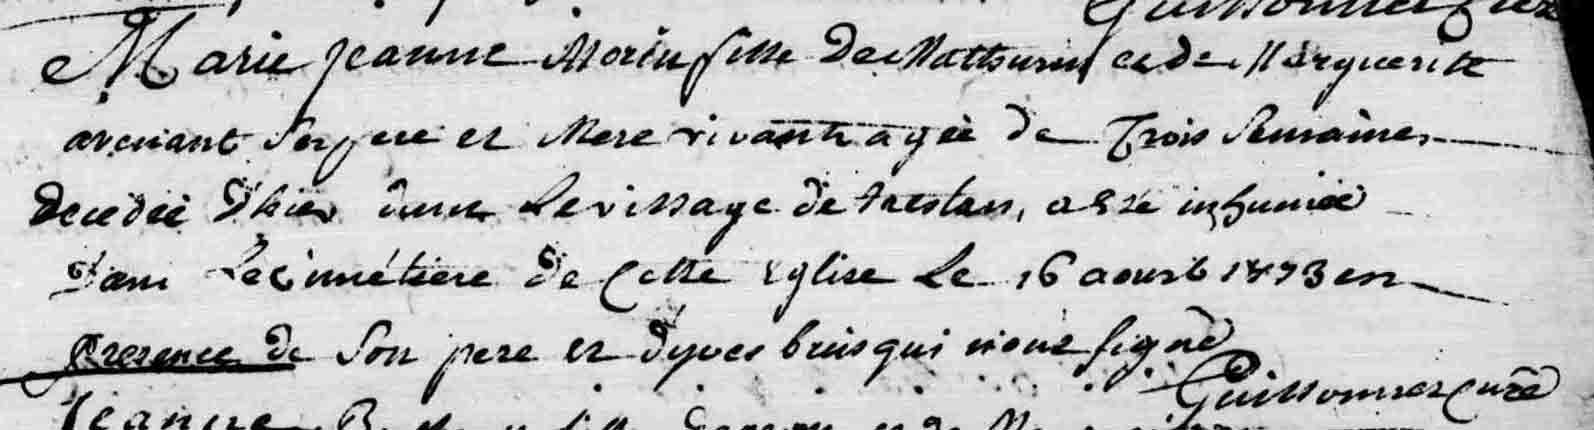 Guillonnet Curé
Marie Jeanne Morin fille De Mathurin et de Marguerite
avenant Ses pere et Mere vivants agée de Trois Semaines
decedée d'hier dans Le village de, a été inhumée
dans Le cimétiere de Cette Eglise Le 16 aoust 1773 en
presence de Son pere et d'yves qui n'ont signé
Guillonnet Curé
Jeanne fille de